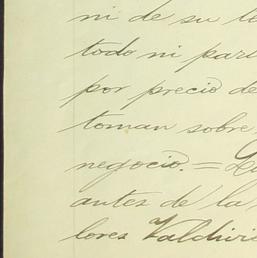 ni de su
todo ni
por precio de
toman sobre
negocio. =
antes de la
lores Valdivi